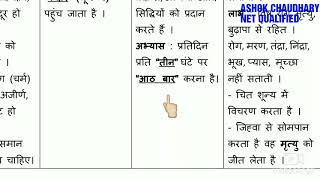 ASHOK CHAUDHARY
NET QUALIFIED
दूर हो
को
ग (चर्म)
अजीर्ण,
ट हो
समान
चाहिए।
पहुंच जाता है ।
सिद्धियों को प्रदान
करते हैं ।
अभ्यास : प्रतिदिन
प्रति "तीन" घंटे पर
"आठ बार" करना है।
मृत्यु,
बुढापा से रहित ।
रोग, मरण, तंद्रा, निंद्रा,
भूख, प्यास, मूर्च्छा
नहीं सताती ।
- चित शून्य में
विचरण करता है ।
- जिह्वा से सोमपान
करता है वह मृत्यु को
जीत लेता है ।